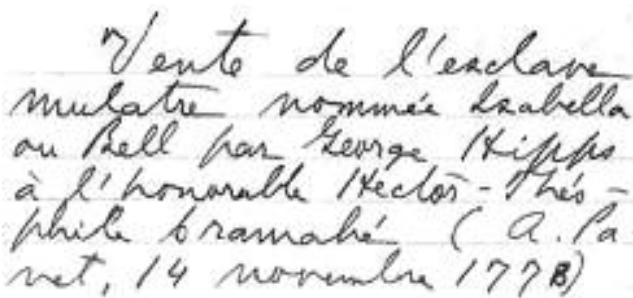 Vente de l'esclave
mulatre nommée Isabella
ou Bell par George Hipps
à l'honorable Hector-Théo-
phile Cramahé (A. Pa
net, 14 novembre 1778)